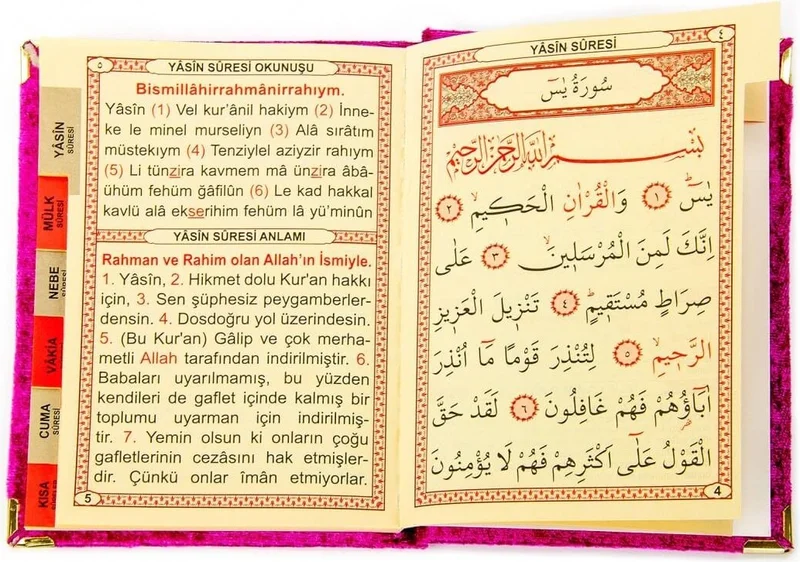 ٤
YÂSİN SÛRESİ
سُورَةُ يٰسٓ
بِسْمِ اللّٰهِ الرَّحْمٰنِ الرَّحٖيمِ
يٰسٓ ﴿١﴾ وَالْقُرْاٰنِ الْحَكٖيمِۙ ﴿٢﴾
اِنَّكَ لَمِنَ الْمُرْسَلٖينَۙ ﴿٣﴾ عَلٰى
صِرَاطٍ مُسْتَقٖيمٍؕ ﴿٤﴾ تَنْزٖيلَ الْعَزٖيزِ
الرَّحٖيمِۙ ﴿٥﴾ لِتُنْذِرَ قَوْمًا مَٓا اُنْذِرَ
اٰبَٓاؤُهُمْ فَهُمْ غَافِلُونَ ﴿٦﴾ لَقَدْ حَقَّ
الْقَوْلُ عَلٰٓى اَكْثَرِهِمْ فَهُمْ لَا يُؤْمِنُونَ
4
٥
YÂSİN SÛRESİ OKUNUŞU
Bismillâhirrahmânirrahıym.
Yâsîn (1) Vel kur'ânil hakiym (2) İnne-
ke le minel murseliyn (3) Alâ sırâtım
müstekıym (4) Tenziylel aziyzir rahıym
(5) Li tünzira kavmem mâ ünzira âbâ-
ühüm fehüm ğafilûn (6) Le kad hakkal
kavlü alâ ekserihim fehüm lâ yü'minûn
YÂSİN SÛRESİ ANLAMI
Rahman ve Rahim olan Allah'ın İsmiyle.
1. Yâsîn, 2. Hikmet dolu Kur'an hakkı
için, 3. Sen şüphesiz peygamberler-
densin. 4. Dosdoğru yol üzerindesin.
5. (Bu Kur'an) Gâlip ve çok merha-
metli Allah tarafından indirilmiştir. 6.
Babaları uyarılmamış, bu yüzden
kendileri de gaflet içinde kalmış bir
toplumu uyarman için indirilmiş-
tir. 7. Yemin olsun ki onların çoğu
gafletlerinin cezâsını hak etmişler-
dir. Çünkü onlar îmân etmiyorlar.
5
YÂSİN
SÛRESİ
MÜLK
SÛRESİ
NEBE
VÂKIA
CUMA
SÛRESİ
KISA